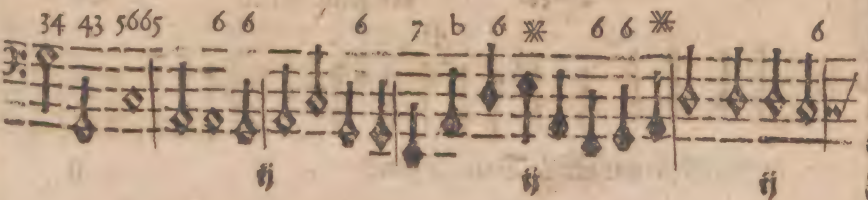 34 43 5665 6 6 6 7 b 6 ※ 6 6 ※ 6
ij ij ij